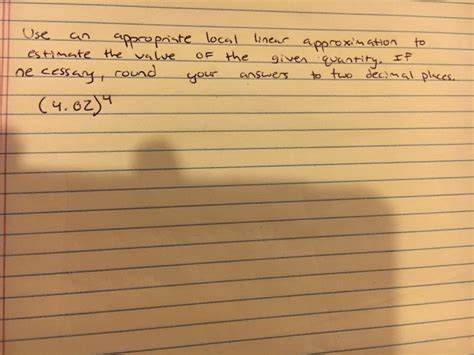 Use an appropriate local linear approximation to
estimate the value OF the given quantity. IF
necessary, round your answers to two decimal places.
(4.02)⁴